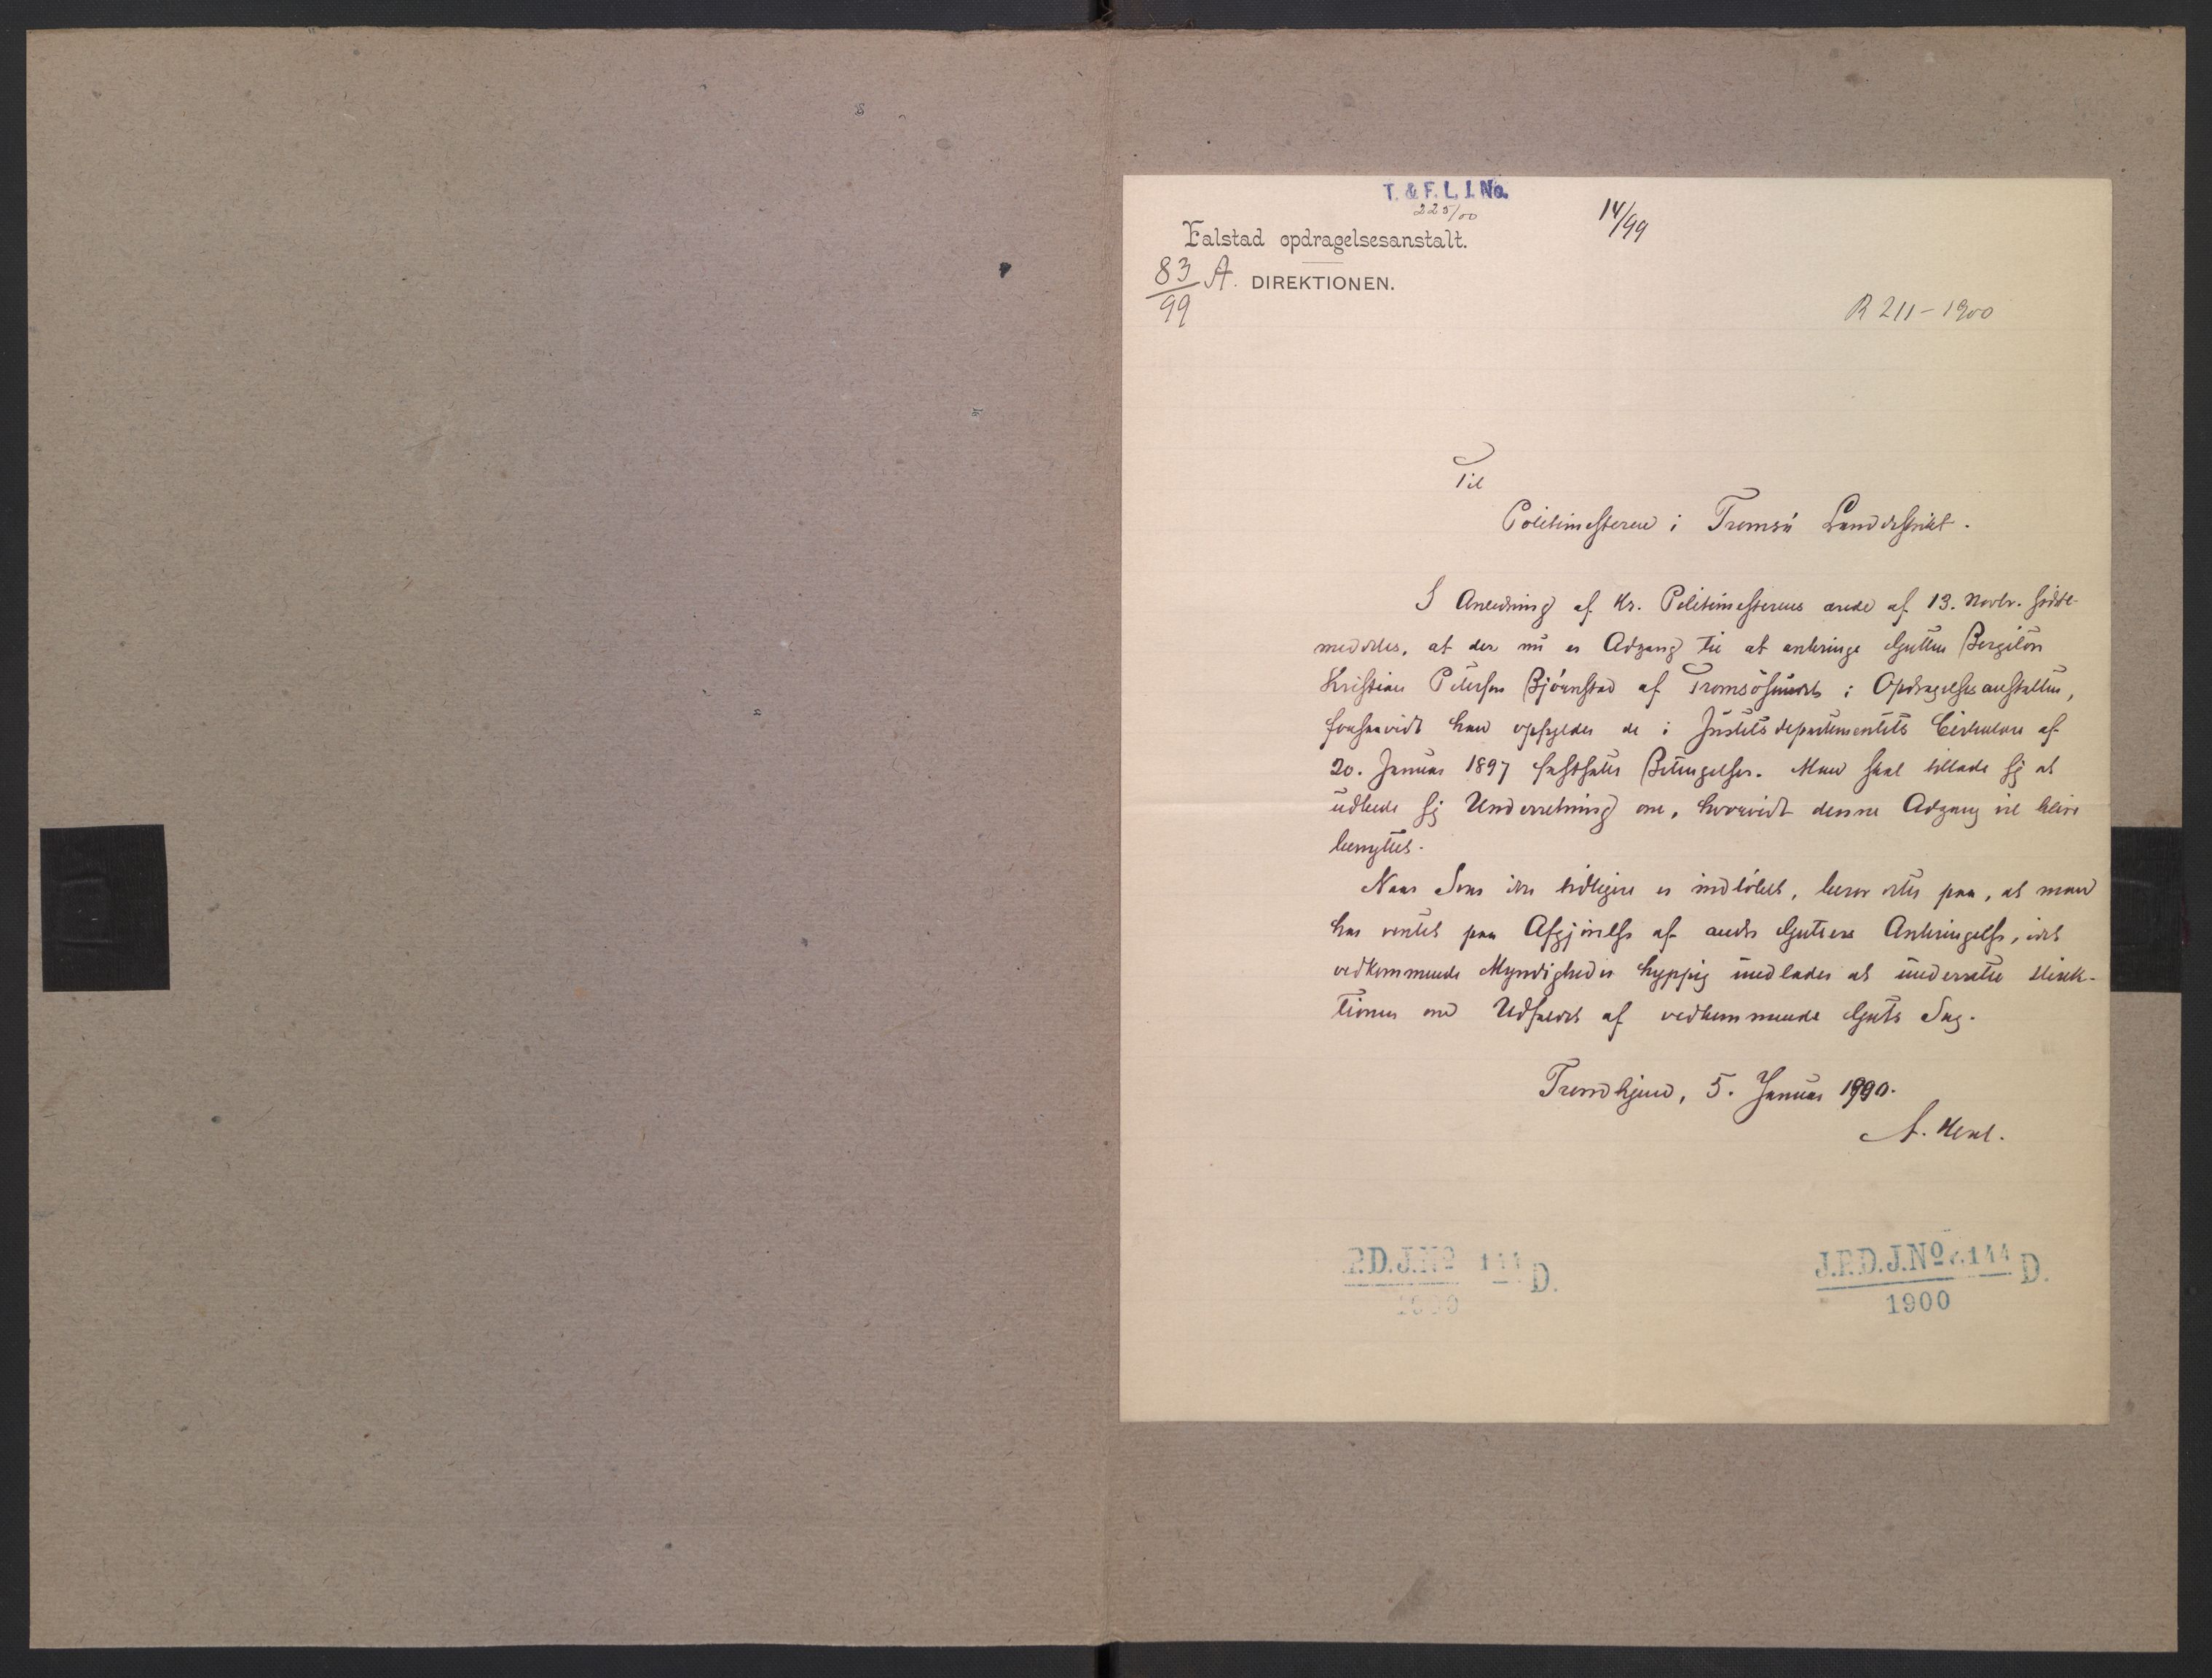 T. & F. L. J. No.
225/00
14/99
Falstad opdragelsesanstalt.
83/99 A. DIREKTIONEN.
R 211-1900
Til
Politimesteren i Tromsö Landdistrikt.
I Anledning af Hr. Politimesterens ærede af 13. Novbr. sidstl.
meddeles, at der nu er Adgang til at anbringe Gutten Bergiton
Kristian Petersen Bjórnstad af Tromsösundet i Opdragelsesanstalten,
forsaavidt han opfylder de i Justitsdepartementets Cirkulære af
20. Januar 1897 fastsatte Betingelser. Man skal tillade sig at
udbede sig Underretning om, hvorvidt denne Adgang vil blive
benyttet.
Naar Svar ikke tidligere er indlöbet, beror dette paa, at man
har ventet paa Afgjörelse af andre Gutters Anbringelse, idet
vedkommende Myndigheder hyppig undlader at underrette Direk-
tionen om Udfaldet af vedkommende Guts Sag.
Trondhjem, 5. Januar 1900.
A.
P.D.J.Nº 144 D.
1900
J.P.D.J.Nº 144 D.
1900